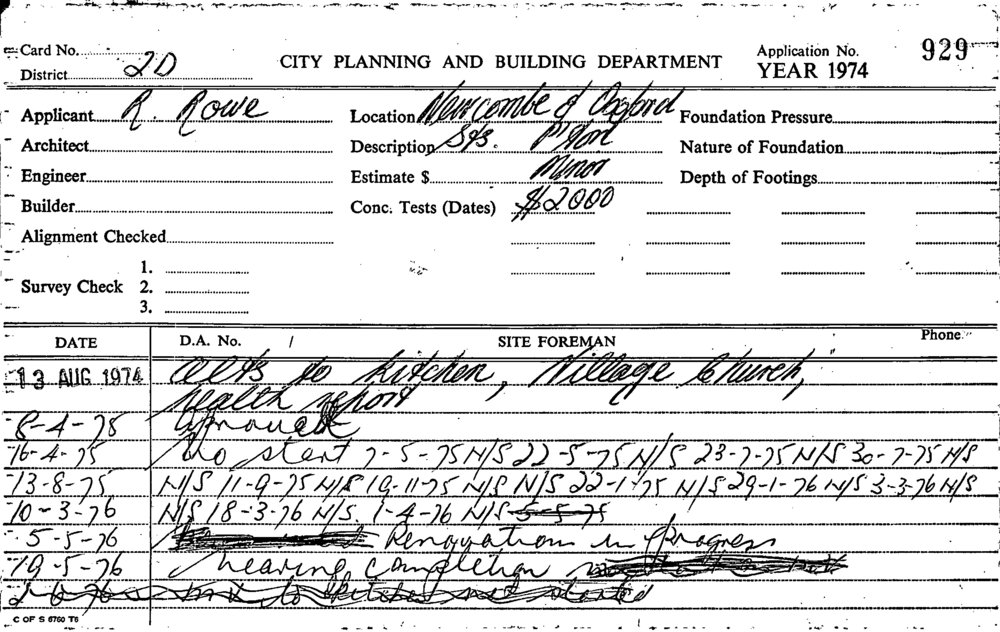 Card No.
District 2D
CITY PLANNING AND BUILDING DEPARTMENT
Application No. 929
YEAR 1974
Applicant R. Rowe
Location Newcombe & Oxford
Foundation Pressure
Architect
Description Sts. P'ton
Nature of Foundation
Engineer
Estimate $ Minor
Depth of Footings
Builder
Conc. Tests (Dates) $2000
Alignment Checked
Survey Check 1.
2.
3.
DATE D.A. No. / SITE FOREMAN Phone
13 AUG 1974 Alts to Kitchen, Village Church,
health report
8-4-75 Approved
16-4-75 No start 7-5-75 N/S 22-5-75 N/S 23-7-75 N/S 30-7-75 N/S
13-8-75 N/S 11-9-75 N/S 19-11-75 N/S N/S 22-1-75 N/S 29-1-76 N/S 3-3-76 N/S
10-3-76 N/S 18-3-76 N/S 1-4-76 N/S 5-5-75
5-5-76 Renovation in progress
19-5-76 nearing completion
not started
C OF S 6760 T6